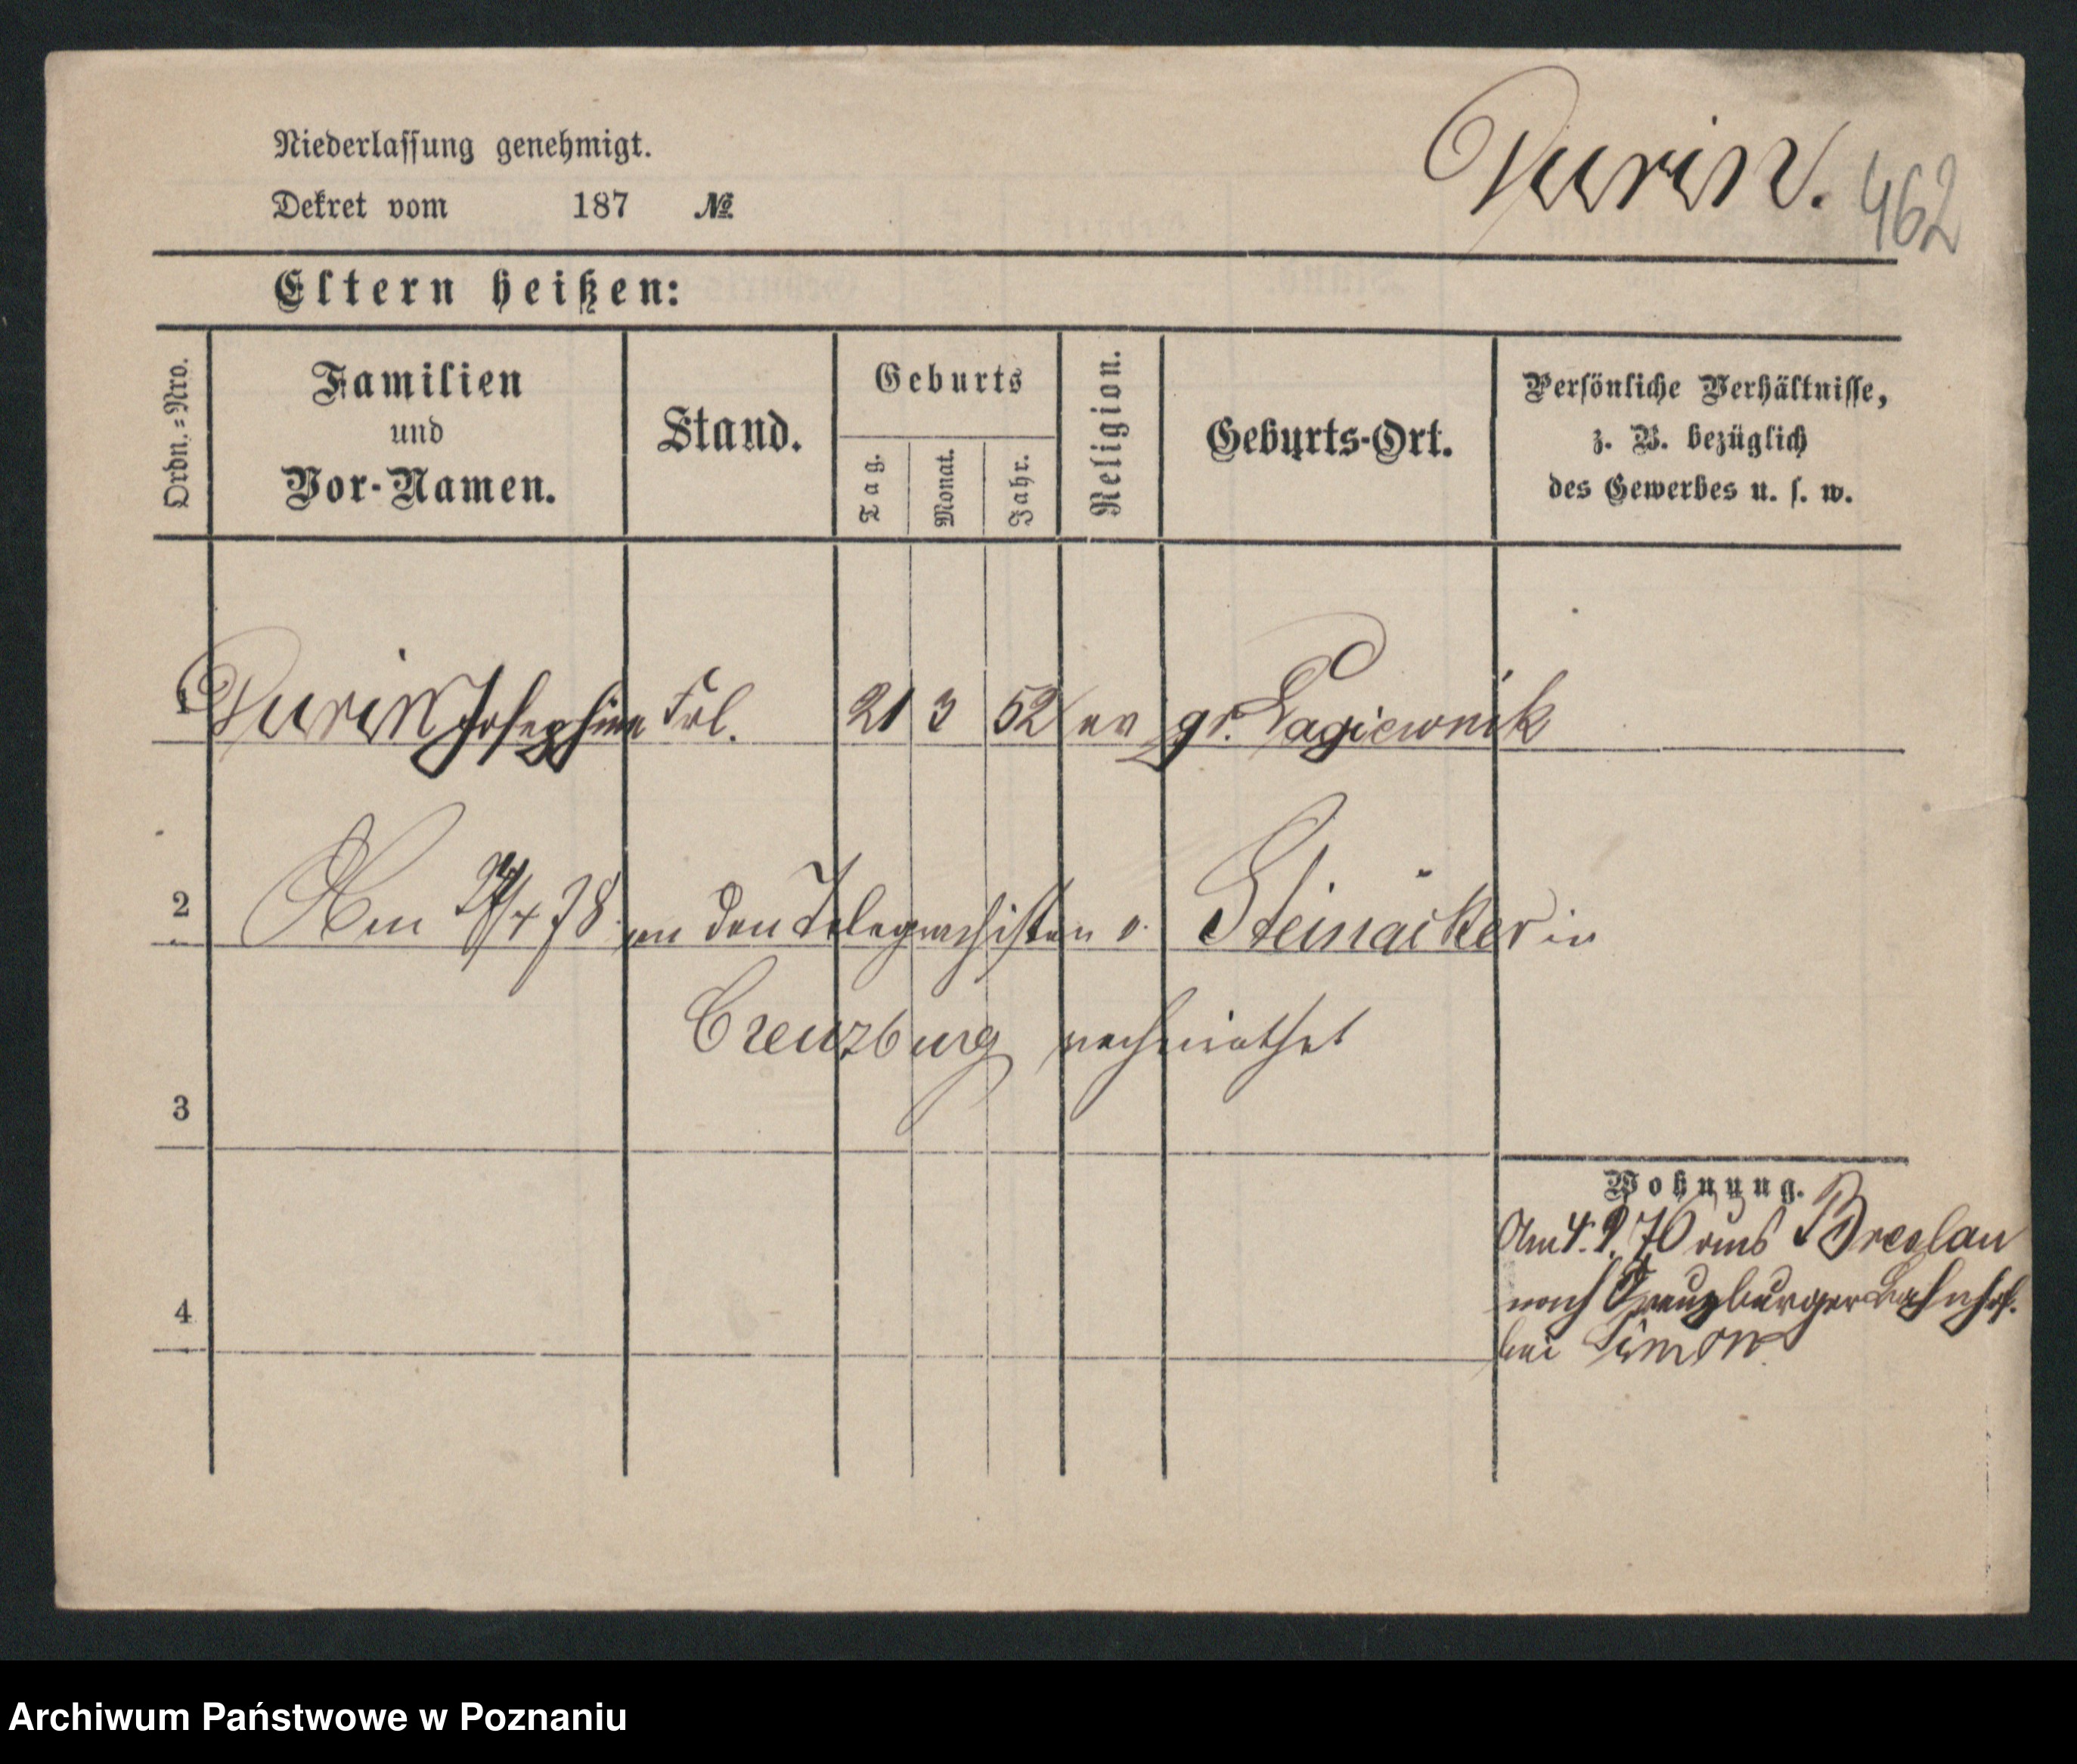 Niederlassung genehmigt.
Dekret vom 187 №
Purin. 462
Eltern heißen:
Ordn.-Nro.
Familien
und
Vor-Namen.
Stand.
Geburts
Tag.
Monat.
Jahr.
Religion.
Geburts-Ort.
Persönliche Verhältnisse,
z. B. bezüglich
des Gewerbes u. s. w.
1 Purin Josephine Frl. 21 3 52 ev gr. Lagiewnik
2 Am /4 78 an den Telegraphisten v. Steinäcker in
Creuzburg verheirathet
3
Wohnung.
Am 4. 9. 76 aus Breslau
nach Creuzburger Bahnhof.
4
bei Simon
Archiwum Państwowe w Poznaniu